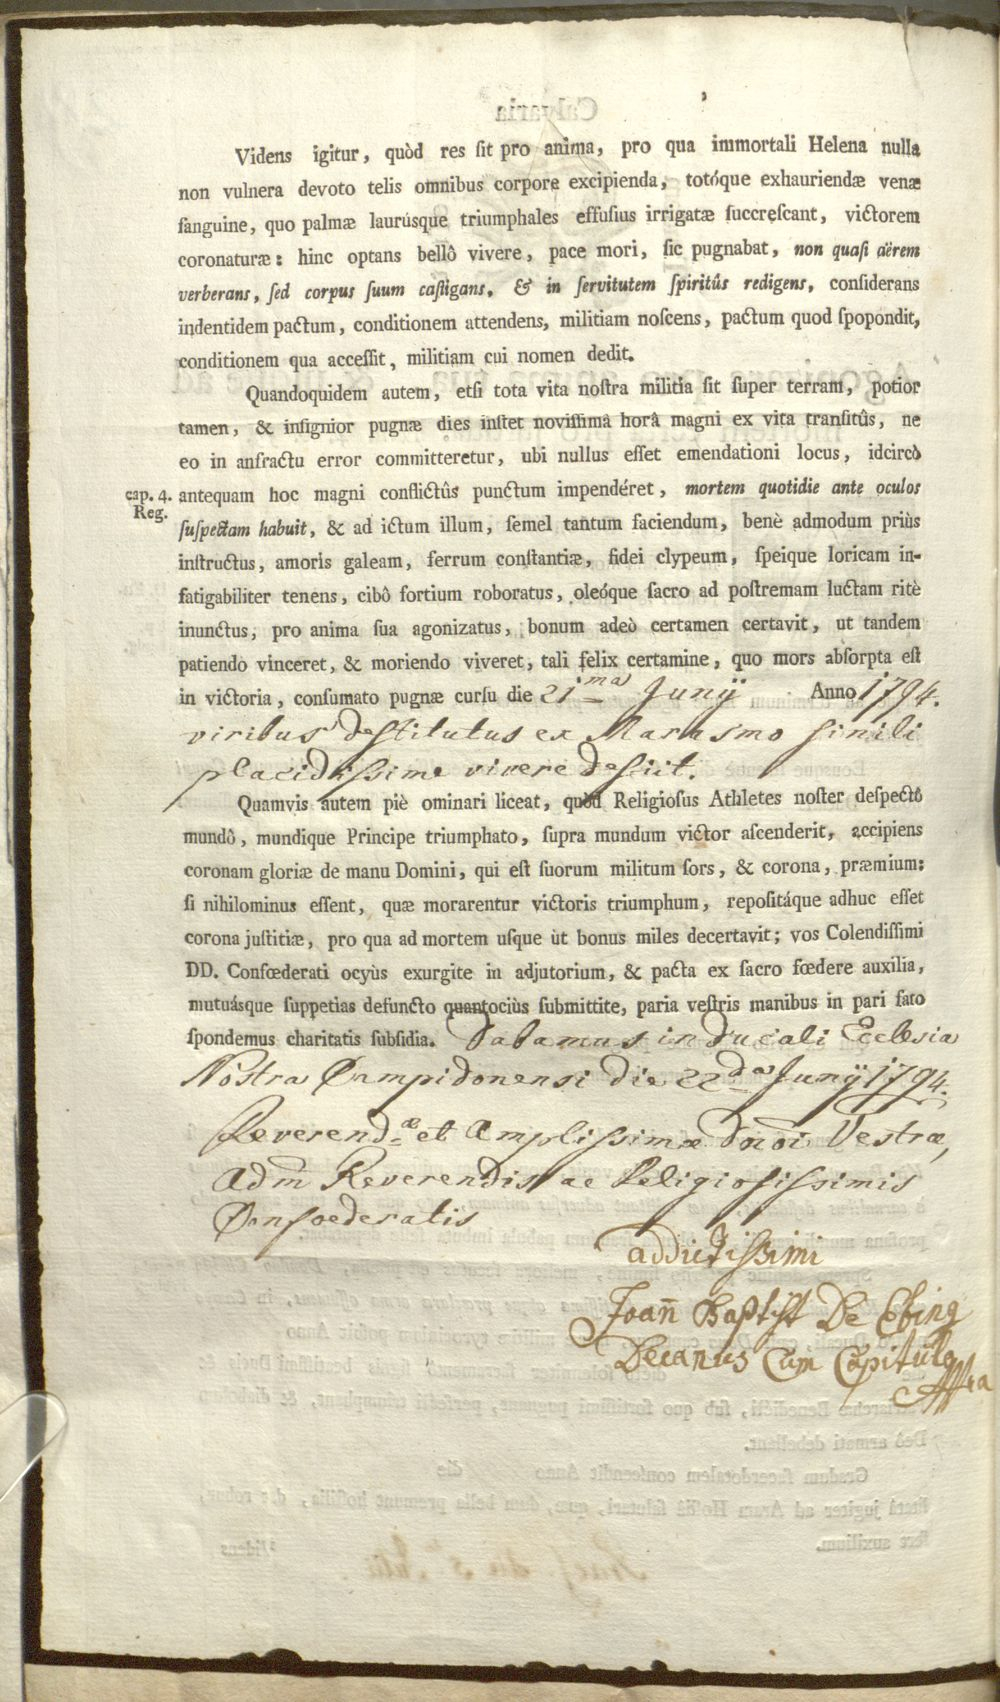 Videns igitur, quòd res ſit pro anima, pro qua immortali Helena nulla
non vulnera devoto telis omnibus corpore excipienda, totóque exhauriendæ venæ
ſanguine, quo palmæ laurúsque triumphales effuſius irrigatæ ſuccreſcant, victorem
coronaturæ: hinc optans bellô vivere, pace mori, ſic pugnabat, non quaſi aërem
verberans, ſed corpus ſuum caſtigans, & in ſervitutem ſpiritûs redigens, conſiderans
indentidem pactum, conditionem attendens, militiam noſcens, pactum quod ſpopondit,
conditionem qua acceſſit, militiam cui nomen dedit.
Quandoquidem autem, etſi tota vita noſtra militia ſit ſuper terram, potior
tamen, & inſignior pugnæ dies inſtet noviſſimâ horâ magni ex vita tranſitûs, ne
eo in anfractu error committeretur, ubi nullus eſſet emendationi locus, idcircò
cap. 4. antequam hoc magni conflictûs punctum impendéret, mortem quotidie ante oculos
Reg. ſuſpectam habuit, & ad ictum illum, ſemel tantum faciendum, benè admodum priùs
inſtructus, amoris galeam, ferrum conſtantiæ, fidei clypeum, ſpeique loricam in-
fatigabiliter tenens, cibô fortium roboratus, oleóque ſacro ad poſtremam luctam ritè
inunctus, pro anima ſua agonizatus, bonum adeò certamen certavit, ut tandem
patiendo vinceret, & moriendo viveret, tali felix certamine, quo mors abſorpta eſt
in victoria, conſumato pugnæ curſu die 21ma Junij Anno 1794.
viribus destitutus ex Marasmo sinili
placidissime vivere desiit.
Quamvis autem piè ominari liceat, quòd Religioſus Athletes noſter deſpectô
mundô, mundique Principe triumphato, ſupra mundum victor aſcenderit, accipiens
coronam gloriæ de manu Domini, qui eſt ſuorum militum ſors, & corona, præmium:
ſi nihilominus eſſent, quæ morarentur victoris triumphum, repoſitáque adhuc eſſet
corona juſtitiæ, pro qua ad mortem uſque ùt bonus miles decertavit; vos Colendiſſimi
DD. Confœderati ocyùs exurgite in adjutorium, & pacta ex ſacro fœdere auxilia,
mutuásque ſuppetias defuncto quantociùs ſubmittite, paria veſtris manibus in pari fato
ſpondemus charitatis ſubſidia. Dabamus in Ducali Ecclesia
Nostra Campidonensi die 22da Junij 1794.
Reverendæ et Amplissimæ Dnõi Vestræ,
Adm̄ Reverendis ac Religiosissimis
Confoederatis
addictissimi
Joan̄ Baptist De Ebing
Decanus Cum Capitulo